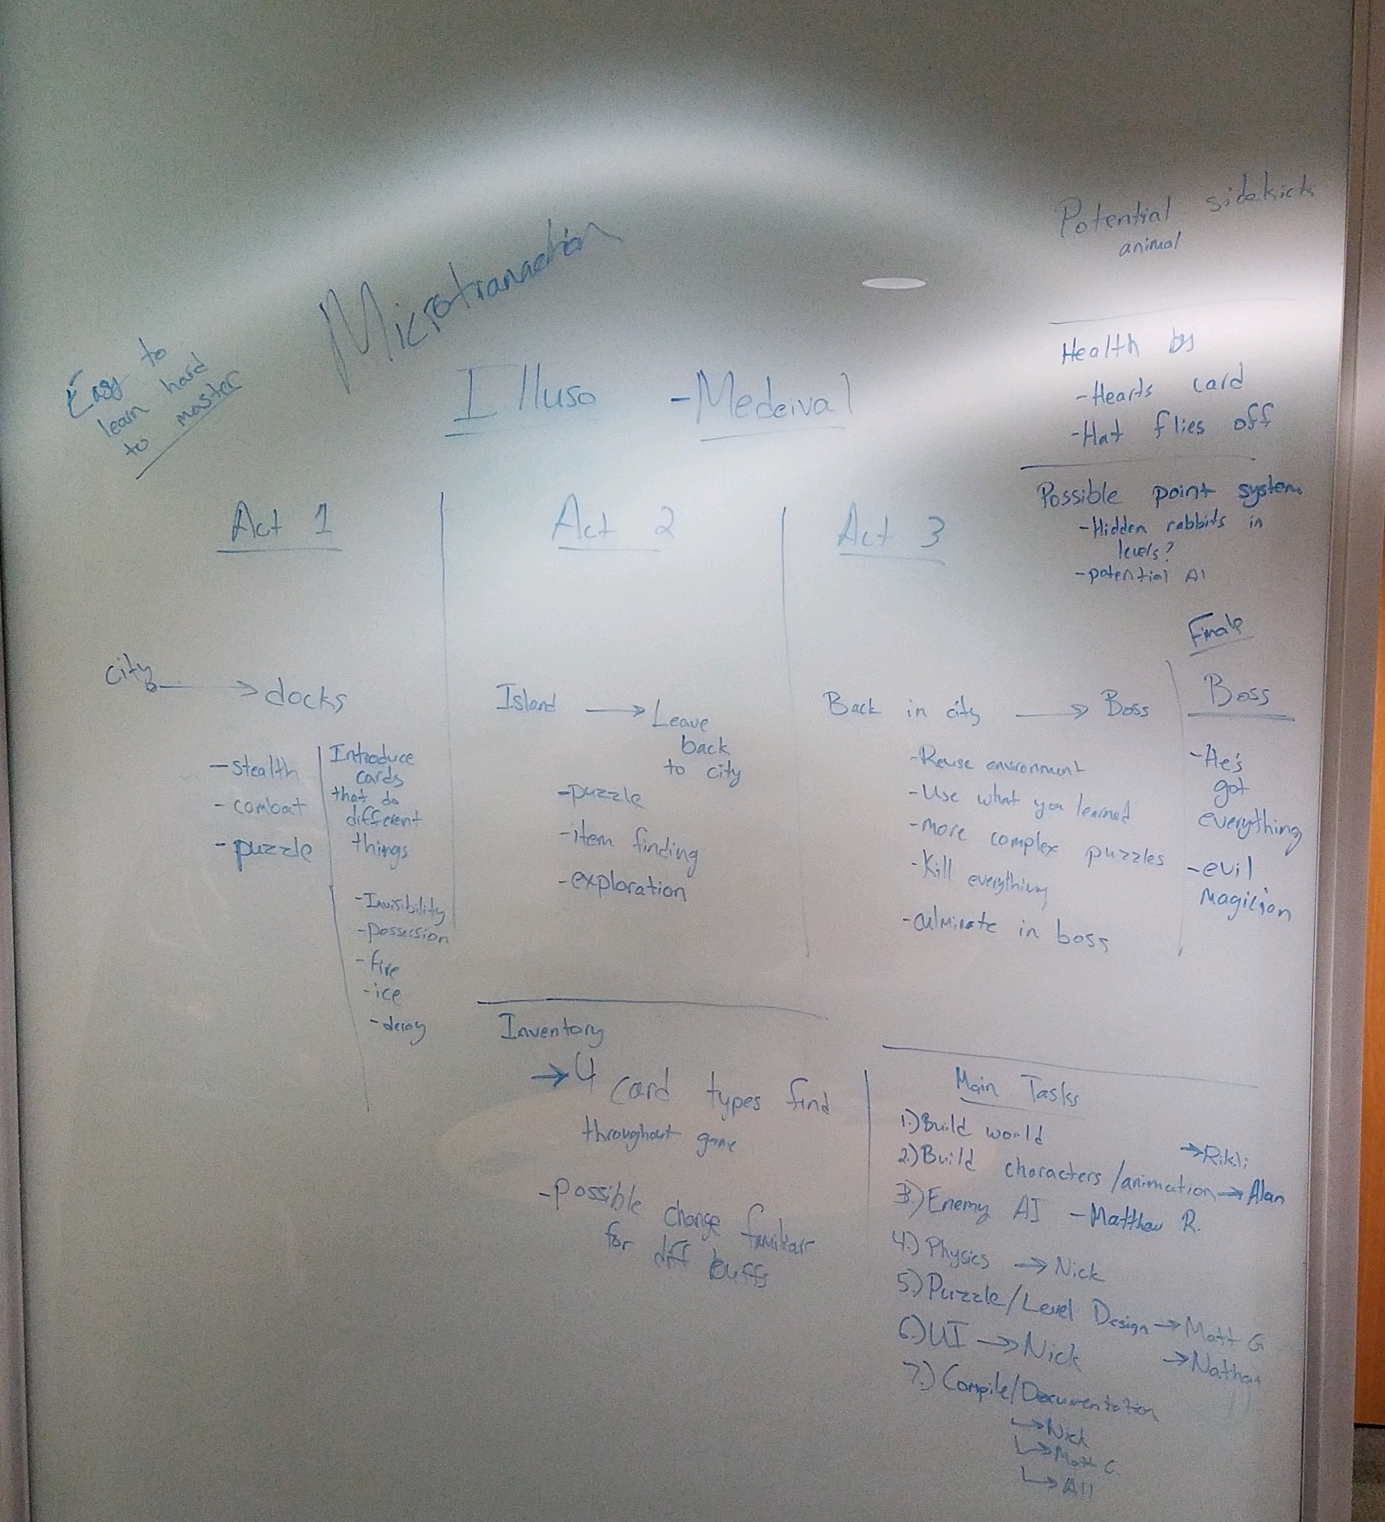 Potential sidekick
animal
Microtranaction
Easy to
learn hard
to master
Illuso - Medeival
Health by
- Hearts card
- Hat flies off
Possible point system
- Hidden rabbits in
levels?
- potential AI
Act 1
city → docks
- stealth
- combat
- puzzle
Introduce
cards
that do
different
things
- Invisibility
- possession
- fire
- ice
- decoy
Act 2
Island → Leave
back
to city
- puzzle
- item finding
- exploration
Act 3
Back in city → Boss
- Reuse environment
- Use what you learned
- more complex puzzles
- Kill everything
- culminate in boss
Finale
Boss
- He's
got
everything
- evil
magician
Inventory
→ 4 card types find
throughout game
- possible change familiar
for diff buffs
Main Tasks
1.) Build world
→ Rikli
2.) Build characters/animation → Alan
3.) Enemy AI - Matthew R.
4.) Physics → Nick
5.) Puzzle/Level Design → Matt G
→ Nathan
6.) UI → Nick
7.) Compile/Documentation
↳ Nick
↳ Matt
↳ All